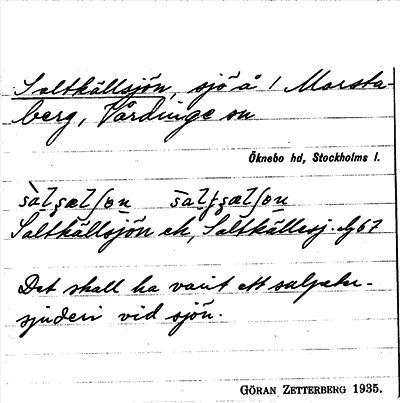 Saltkällsjön, sjö å 1 Morsta-
berg, Vårdinge sn
Öknebo hd, Stockholms l.
Saltkällsjön ek, Saltkällesj. dg 67
Det skall ha varit ett salpeter-
sjuderi vid sjön.
GÖRAN ZETTERBERG 1935.